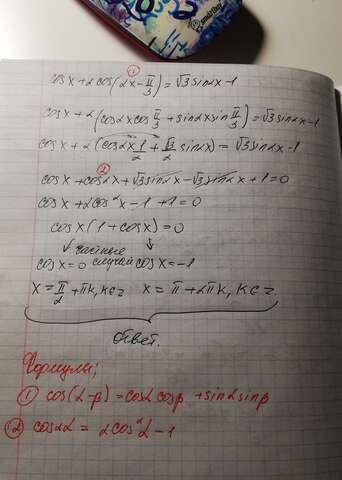 cosx+2cos(2x-π/3)=√3sin2x-1
cosx+2(cos2xcosπ/3+sin2xsinπ/3)=√3sin2x-1
cosx+2(cos2x1/2+√3/2sin2x)=√3sin2x-1
cosx+cos2x+√3sin2x-√3sin2x+1=0
cosx+2cos²x-1+1=0
cosx(1+cosx)=0
частные
cosx=0 случаи cosx=-1
x=π/2+πk,k∈z x=π+2πk,k∈z
Ответ.
Формулы;
① cos(α-β)=cosαcosβ+sinαsinβ
② cos2α=2cos²α-1